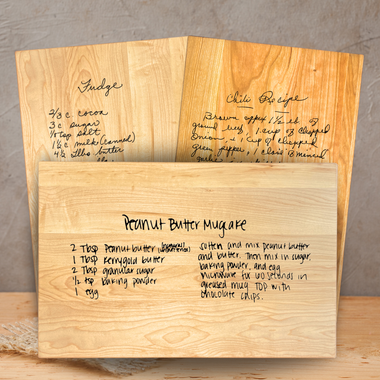 Fudge
2/3 c. cocoa
3 c sugar
1/8 tsp salt
1 1/2 c milk (canned)
butter
Chili Recipe
Brown approx 1 1/2 lb of
ground beef, 1 cup of chopped
onion & 1 cup of chopped
green pepper, 1 clove minced
Peanut Butter Mugcake
2 Tbsp Peanut butter
1 Tbsp Kerrygold butter
2 Tbsp granular sugar
1/2 tsp baking powder
1 egg
Soften and mix peanut butter
and butter. Then mix in sugar,
baking powder, and egg
microwave for 60 seconds in
greased mug. TOP with
chocolate chips.